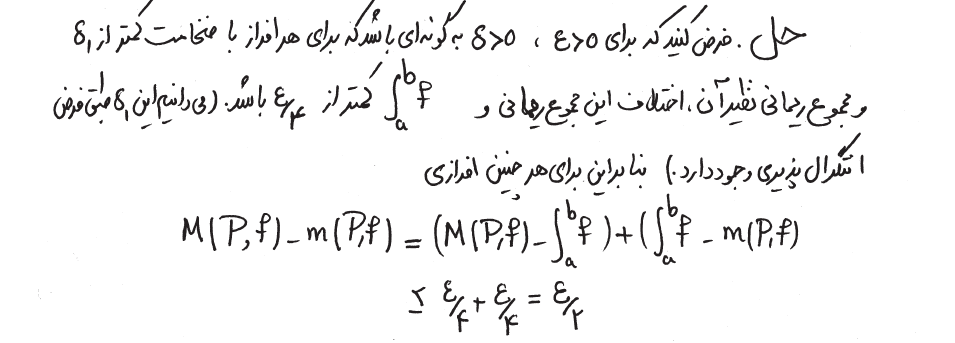 حل. فرض کنید که برای ε>0 ، δ>0 به گونه‌ای باشد که برای هر افراز با ضخامت کمتر از δ₁
و مجموع ریمانی نظیر آن، اختلاف این مجموع ریمانی و ∫ₐᵇ f کمتر از ε/۴ باشد. (می‌دانیم این δ₁ طبق فرض
انتگرال پذیری وجود دارد.) بنابراین برای هر چنین افرازی
M(P,f) - m(P,f) = (M(P,f) - ∫ₐᵇ f) + (∫ₐᵇ f - m(P,f)
≤ ε/۴ + ε/۴ = ε/۲